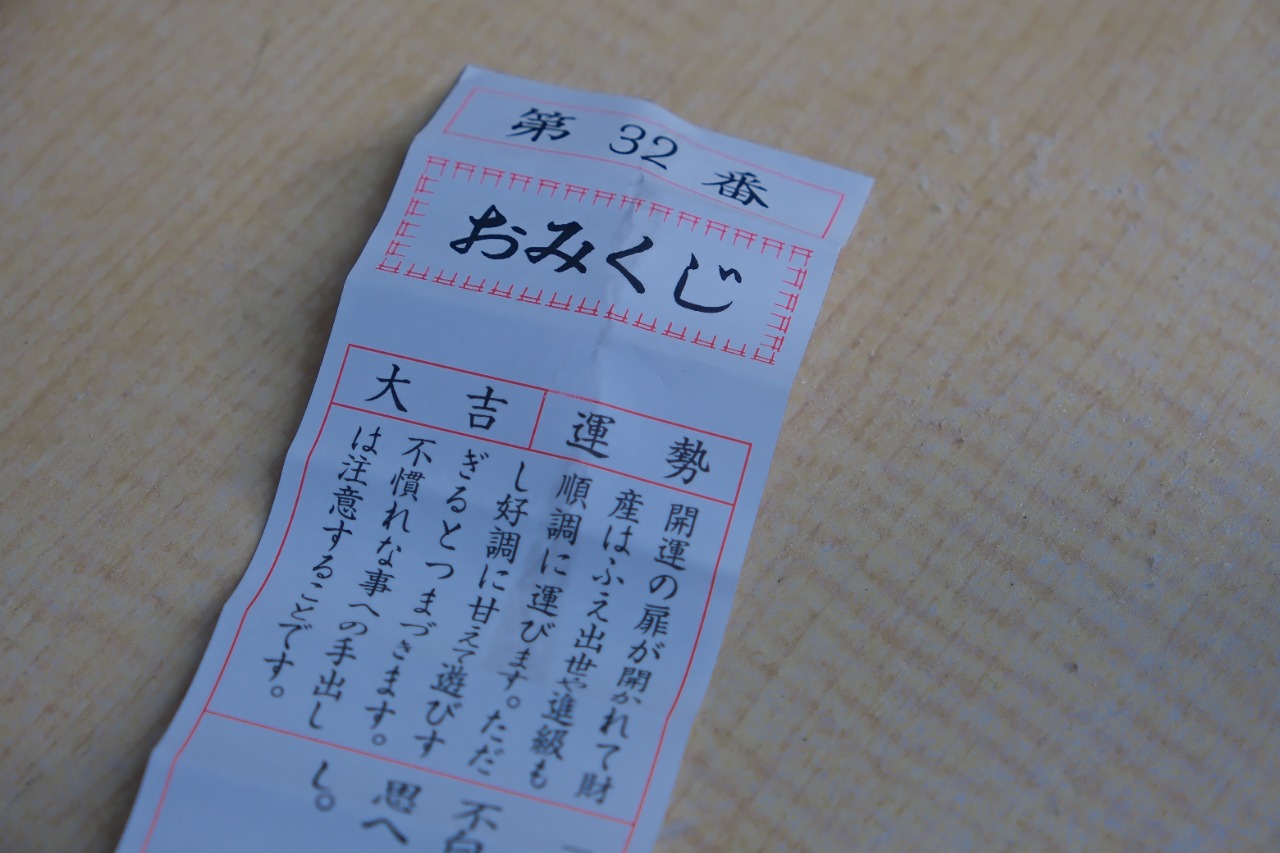 第32番
おみくじ
大吉 運勢
開運の扉が開かれて財
産はふえ出世や進級も
順調に運びます。ただ
し好調に甘えて遊びす
ぎるとつまづきます。
不慣れな事への手出し
は注意することです。
思へ
し。